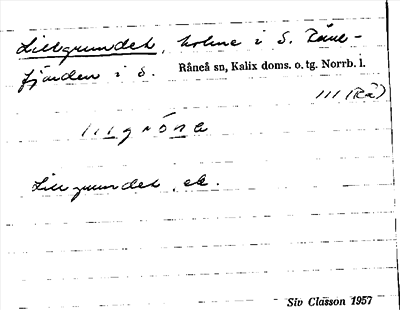 Lillgrundet, holme i S. Råne-
fjärden i S. Råneå sn, Kalix doms. o. tg. Norrb. l.
111 (Rå)
Lillgrundet,
Siv Classon 1957